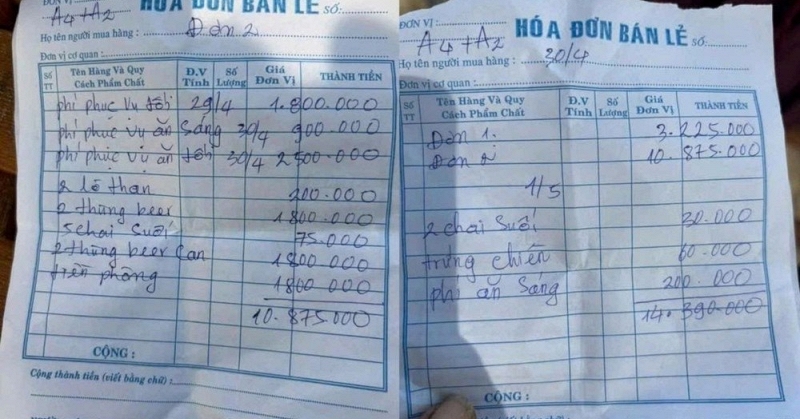 HÓA ĐƠN BÁN LẺ SỐ:
A4+A2
Họ tên người mua hàng : Đơn 2
Đơn vị cơ quan :
Số TT Tên Hàng Và Quy Cách Phẩm Chất Đ.V Tính Số Lượng Giá Đơn Vị THÀNH TIỀN
phí phục vụ tối 29/4 1.800.000
phí phục vụ ăn sáng 30/4 900.000
phí phục vụ ăn tối 30/4 2500.000
2 lò than 200.000
2 thùng beer 1800.000
5 chai suối 75.000
2 thùng beer Can 1800.000
tiền phòng 1800.000
10.875.000
CỘNG :
Cộng thành tiền (viết bằng chữ) :
ĐƠN VỊ : HÓA ĐƠN BÁN LẺ SỐ:
A4+A2
Họ tên người mua hàng : 30/4
Đơn vị cơ quan :
Số TT Tên Hàng Và Quy Cách Phẩm Chất Đ.V Tính Số Lượng Giá Đơn Vị THÀNH TIỀN
Đơn 1. 3.225.000
Đơn 2 10.875.000
1/5
2 chai suối 30.000
trứng chiên 60.000
phí ăn sáng 200.000
14.390.000
CỘNG :